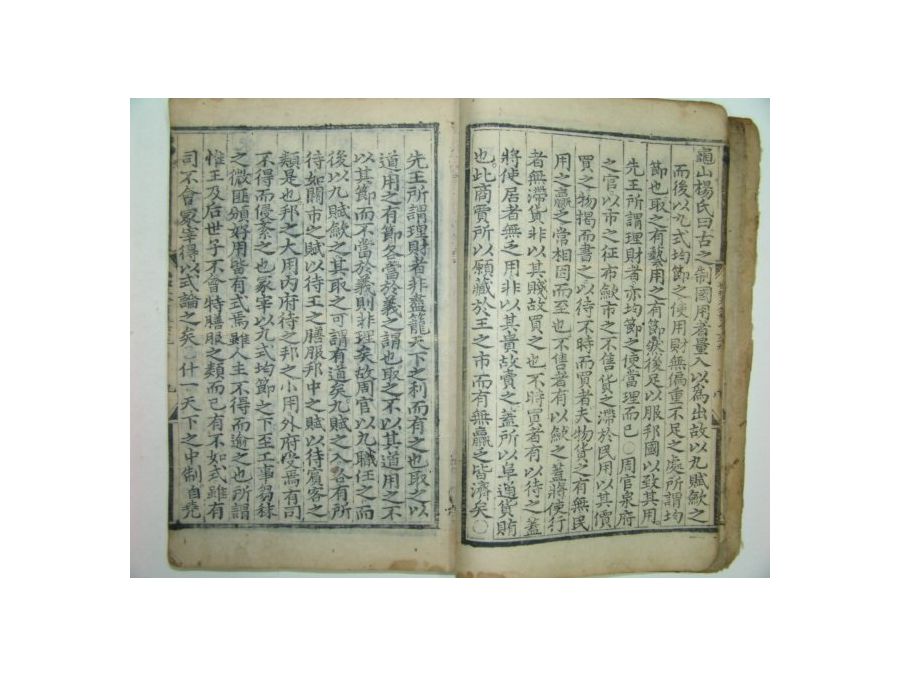 龜山楊氏曰古之制國用者量入以爲出故以九賦斂之
而後以九式均節之使用財無偏重不足之處所謂均
節也取之有藝用之有節然後足以服邦國以致其用
先王所謂理財者亦均節之使當理而已○周官泉府
之官以市之征布斂市之不售貨之滯於民用以其價
買之物楬而書之以待不時而買者夫物貨之有無民
用之贏乏常相因而至也不售者有以斂之蓋將使行
者無滯貨非以其賤故買之也不時買者有以待之蓋
將使居者無乏用非以其貴故賣之蓋所以阜通貨賄
也此商賈所以願藏於王之市而有無贏乏皆濟矣○
先王所謂理財者非盡籠天下之利而有之也取之以
道用之有節各當於義之謂也取之不以其道用之不
以其節而不當於義則非理矣故周官以九職任之而
後以九賦斂之其取之可謂有道矣九賦之入各有所
待如關市之賦以待王之膳服邦中之賦以待賓客之
類是也邦之大用內府待之邦之小用外府受焉有司
不得而侵紊之也冢宰以九式均節之下至工事芻秣
之微匪頒好用皆有式焉雖人主不得而逾之也所謂
惟王及后世子不會特膳服之類而已有不如式雖有
司不會冢宰得以式論之矣○什一天下之中制自堯